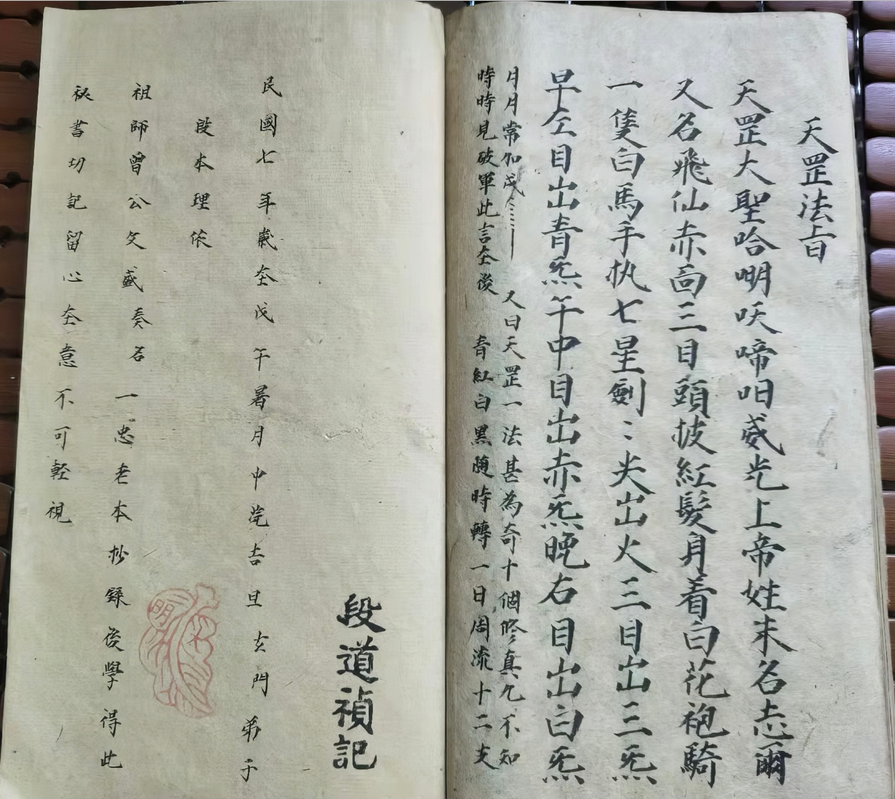 天罡法旨
天罡大聖哈唎吠啼呾威光上帝姓末名志爾
又名飛仙赤面三目頭披紅髮身着白花袍騎
一隻白馬手执七星劍〻尖出火三目出三炁
早左目出青炁午中目出赤炁晚右目出白炁
月月常加戌 又曰天罡一法甚為奇十個修真九不知
時時見破軍此言在後 青紅白黑随時轉一日周流十二支
段道禎記
民國七年歲在戊午暑月中浣吉旦玄門弟子
段本理依
祖師曾公文盛奏名一忠老本抄錄後學得此
秘書切記留心在意不可輕視